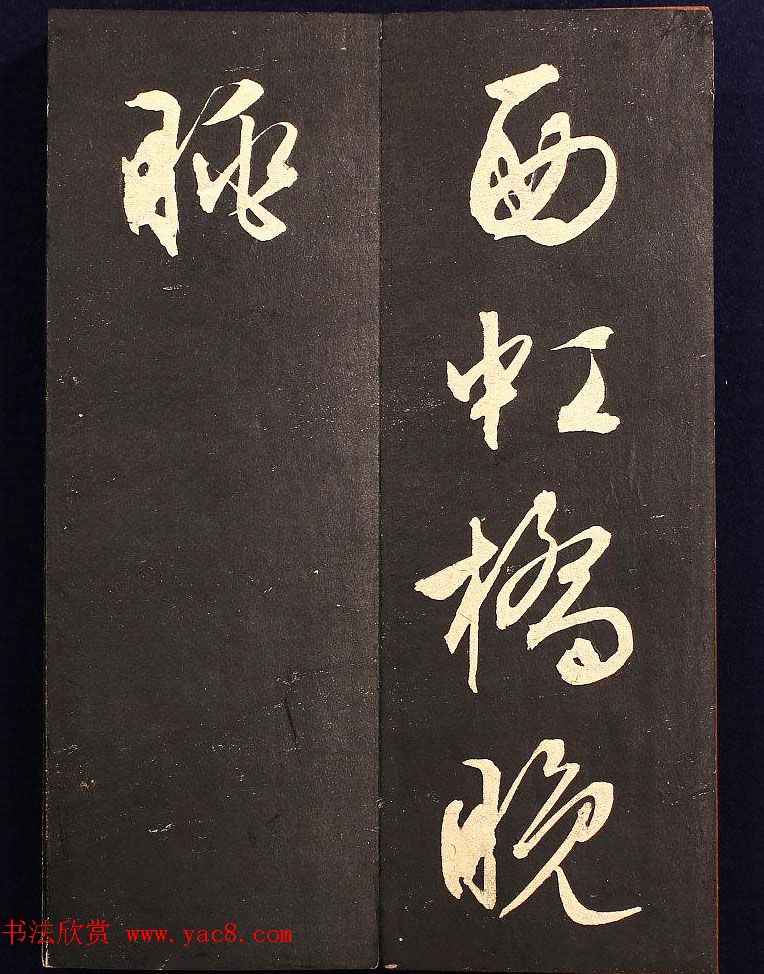 西虹橋晚
眺
书法欣赏 www.yac8.com